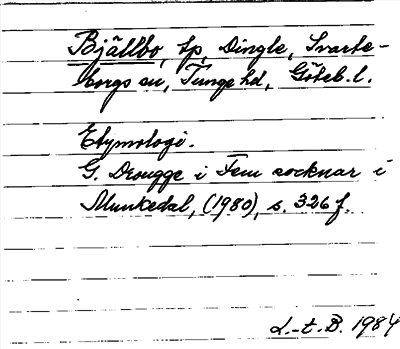 Bjällbo, tp, Dingle, Svarte-
borgs sn, Tunge hd, Göteb. l.
Etymologi.
G. Drougge i Fem socknar i
Munkedal, (1980), s. 326 f.
L.-t. B. 1984